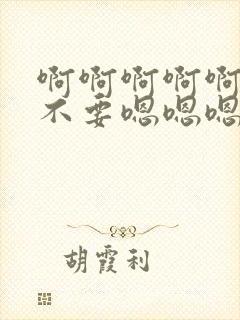 啊啊啊啊啊
不要嗯嗯嗯
胡霞利